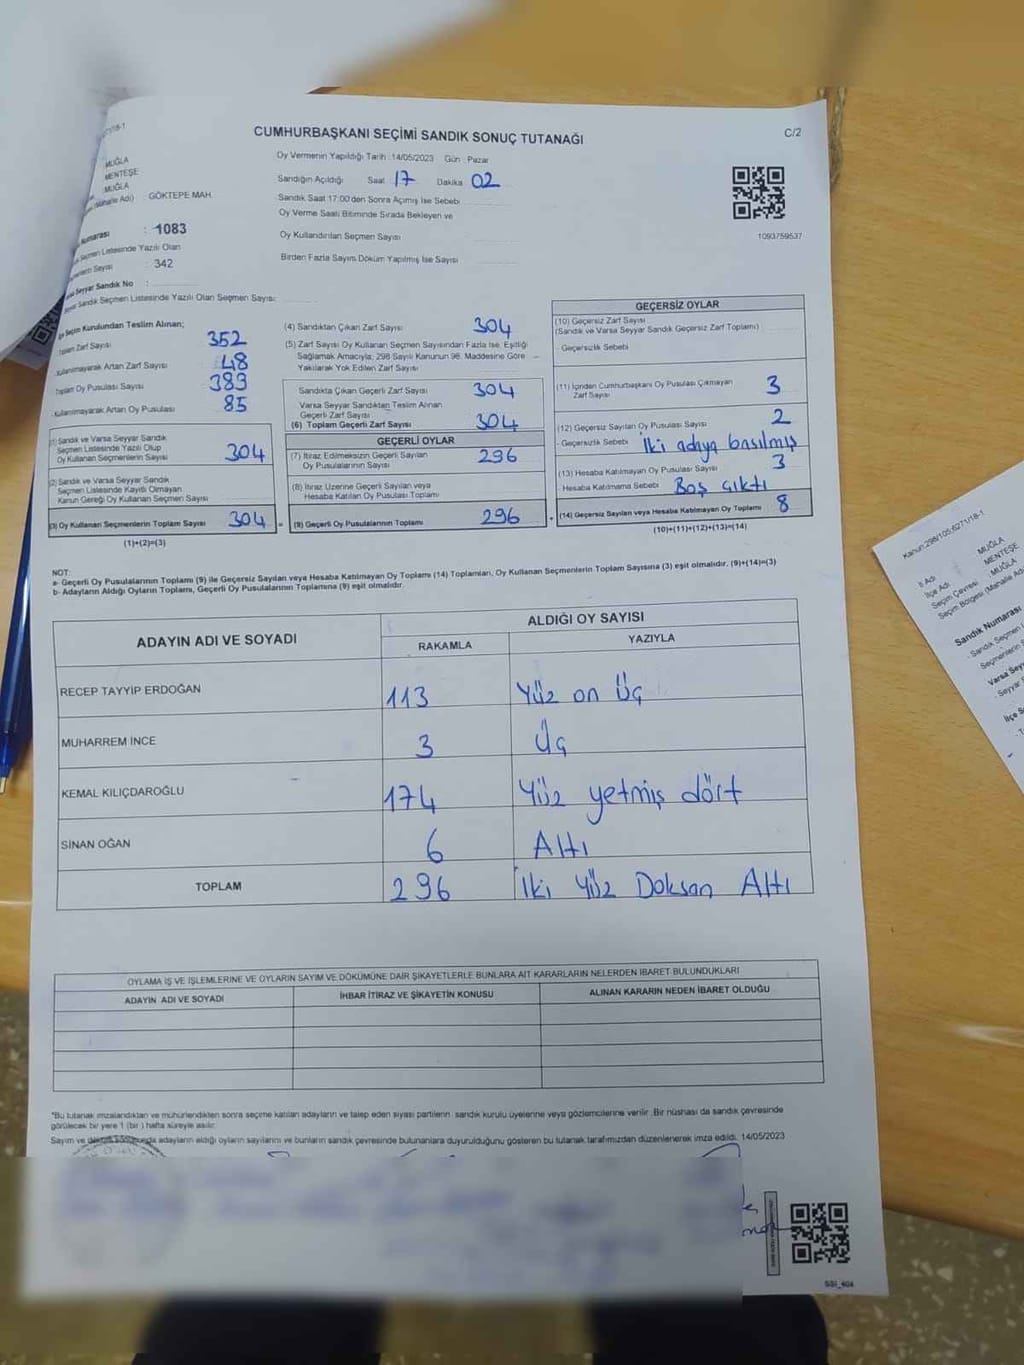 CUMHURBAŞKANI SEÇİMİ SANDIK SONUÇ TUTANAĞI
C/2
Oy Vermenin Yapıldığı Tarih :14/05/2023 Gün : Pazar
MUĞLA
MENTEŞE
:MUĞLA
GÖKTEPE MAH
Sandığın Açıldığı Saat 17 Dakika 02
Sandık Saat 17:00'den Sonra Açılmış İse Sebebi
Oy Verme Saati Bitiminde Sırada Bekleyen ve
Oy Kullandırılan Seçmen Sayısı
Birden Fazla Sayım Döküm Yapılmış İse Sayısı
1093759537
: 1083
Seçmen Listesinde Yazılı Olan
Sayısı : 342
Seyyar Sandık No :
Seyyar Sandık Seçmen Listesinde Yazılı Olan Seçmen Sayısı:
Seçim Kurulundan Teslim Alınan;
Toplam Zarf Sayısı 352
Kullanılmayarak Artan Zarf Sayısı 48
Toplam Oy Pusulası Sayısı 389
Kullanılmayarak Artan Oy Pusulası 85
(1) Sandık ve Varsa Seyyar Sandık
Seçmen Listesinde Yazılı Olup
Oy Kullanan Seçmenlerin Sayısı 304
(2) Sandık ve Varsa Seyyar Sandık
Seçmen Listesinde Kayıtlı Olmayan
Kanun Gereği Oy Kullanan Seçmen Sayısı
(3) Oy Kullanan Seçmenlerin Toplam Sayısı 304 =
(1)+(2)=(3)
(4) Sandıktan Çıkan Zarf Sayısı 304
(5) Zarf Sayısı Oy Kullanan Seçmen Sayısından Fazla İse, Eşitliği
Sağlamak Amacıyla; 298 Sayılı Kanunun 98. Maddesine Göre
Yakılarak Yok Edilen Zarf Sayısı
Sandıkta Çıkan Geçerli Zarf Sayısı 304
Varsa Seyyar Sandıktan Teslim Alınan
Geçerli Zarf Sayısı
(6) Toplam Geçerli Zarf Sayısı 304
GEÇERLİ OYLAR
(7) İtiraz Edilmeksizin Geçerli Sayılan
Oy Pusulalarının Sayısı 296
(8) İtiraz Üzerine Geçerli Sayılan veya
Hesaba Katılan Oy Pusulası Toplamı
(9) Geçerli Oy Pusulalarının Toplamı 296 +
GEÇERSİZ OYLAR
(10) Geçersiz Zarf Sayısı
(Sandık ve Varsa Seyyar Sandık Geçersiz Zarf Toplamı)
Geçersizlik Sebebi
(11) İçinden Cumhurbaşkanı Oy Pusulası Çıkmayan
Zarf Sayısı 3
(12) Geçersiz Sayılan Oy Pusulası Sayısı 2
Geçersizlik Sebebi İki adaya basılmış
(13) Hesaba Katılmayan Oy Pusulası Sayısı 3
Hesaba Katılmama Sebebi Boş çıktı
(14) Geçersiz Sayılan veya Hesaba Katılmayan Oy Toplamı 8
(10)+(11)+(12)+(13)=(14)
NOT:
a- Geçerli Oy Pusulalarının Toplamı (9) ile Geçersiz Sayılan veya Hesaba Katılmayan Oy Toplamı (14) Toplamları, Oy Kullanan Seçmenlerin Toplam Sayısına (3) eşit olmalıdır. (9)+(14)=(3)
b- Adayların Aldığı Oyların Toplamı, Geçerli Oy Pusulalarının Toplamına (9) eşit olmalıdır.
ADAYIN ADI VE SOYADI
ALDIĞI OY SAYISI
RAKAMLA YAZIYLA
RECEP TAYYİP ERDOĞAN 113 Yüz on Üç
MUHARREM İNCE 3 Üç
KEMAL KILIÇDAROĞLU 174 Yüz yetmiş dört
SİNAN OĞAN 6 Altı
TOPLAM 296 İki Yüz Doksan Altı
OYLAMA İŞ VE İŞLEMLERİNE VE OYLARIN SAYIM VE DÖKÜMÜNE DAİR ŞİKAYETLERLE BUNLARA AİT KARARLARIN NELERDEN İBARET BULUNDUKLARI
ADAYIN ADI VE SOYADI İHBAR İTİRAZ VE ŞİKAYETİN KONUSU ALINAN KARARIN NEDEN İBARET OLDUĞU
*Bu tutanak imzalandıktan ve mühürlendikten sonra seçime katılan adayların ve talep eden siyasi partilerin sandık kurulu üyelerine veya gözlemcilerine verilir. Bir nüshası da sandık çevresinde
görülecek bir yere 1 (bir) hafta süreyle asılır.
Sayım ve adayların aldığı oyların sayılarını ve bunların sandık çevresinde bulunanlara duyurulduğunu gösteren bu tutanak tarafımızdan düzenlenerek imza edildi. 14/05/2023
SSI_404
Kanun:298/105;6271/18-1
İl Adı MUĞLA
İlçe Adı MENTEŞE
Seçim Çevresi :MUĞLA
Seçim Bölgesi (Mahalle Adı)
Sandık Numarası
Sandık Seçmen
Seçmenlerin
Varsa Seyyar